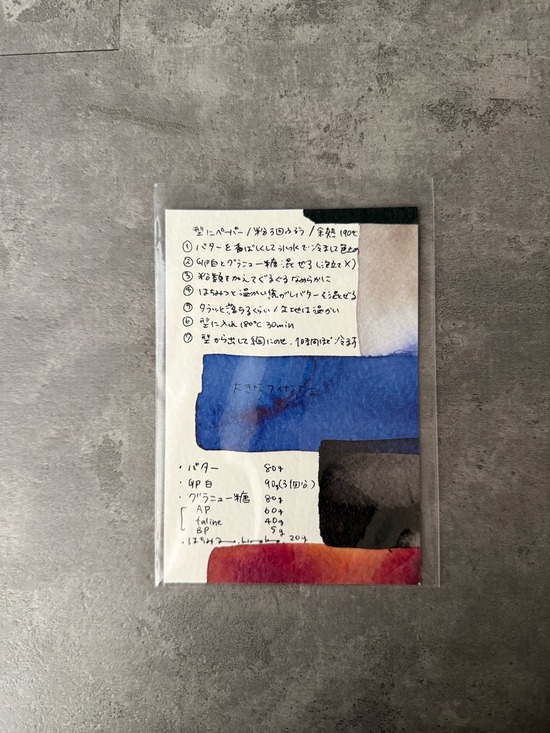 型にペーパー/粉3回ふるう/余熱190℃
① バターを香ばしくして氷水で冷まして色止め
② 卵白とグラニュー糖混ぜる(泡立て×)
③ 粉類も加えてぐるぐるなめらかに
④ はちみつと温かい焦がしバターを混ぜる
⑤ タラッと落ちるくらい/生地は温かい
⑥ 型に入れ180℃ 30min
⑦ 型から出して網にのせ、1時間ほど冷ます
大きなフィナンシェ
・バター 80g
・卵白 90g(3個分)
・グラニュー糖 80g
AP 60g
farine 40g
BP 5g
・はちみつ 20g